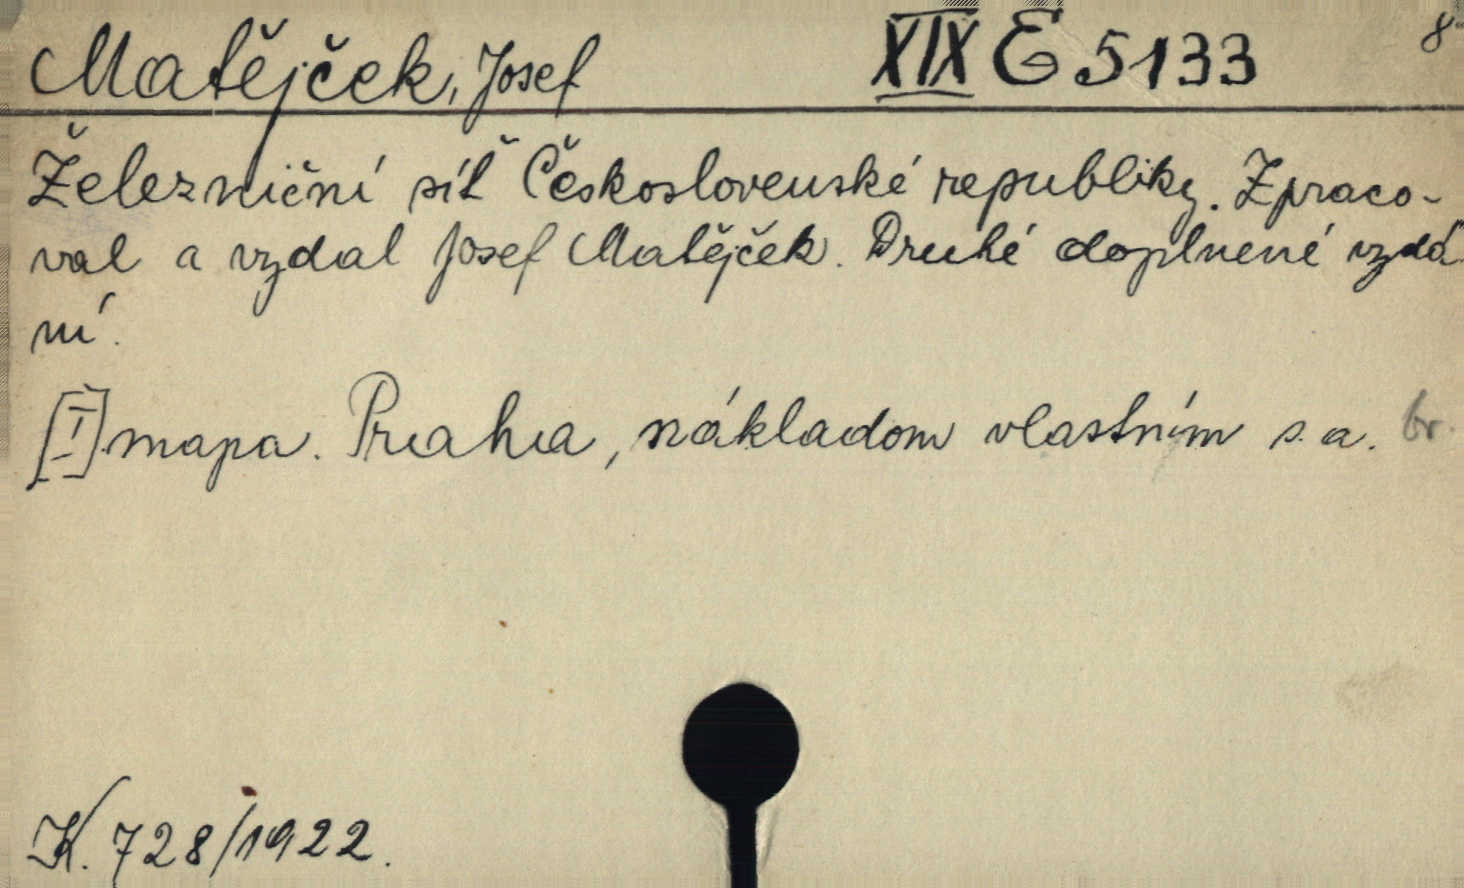 Matějček, Josef XIX E 5133 8°
Železniční síť Československé republiky. Zpraco-
val a vydal Josef Matějček. Druhé doplnené vydá-
ní.
[I] mapa. Praha, nákladom vlastním s. a. br.
K. 728/1922.